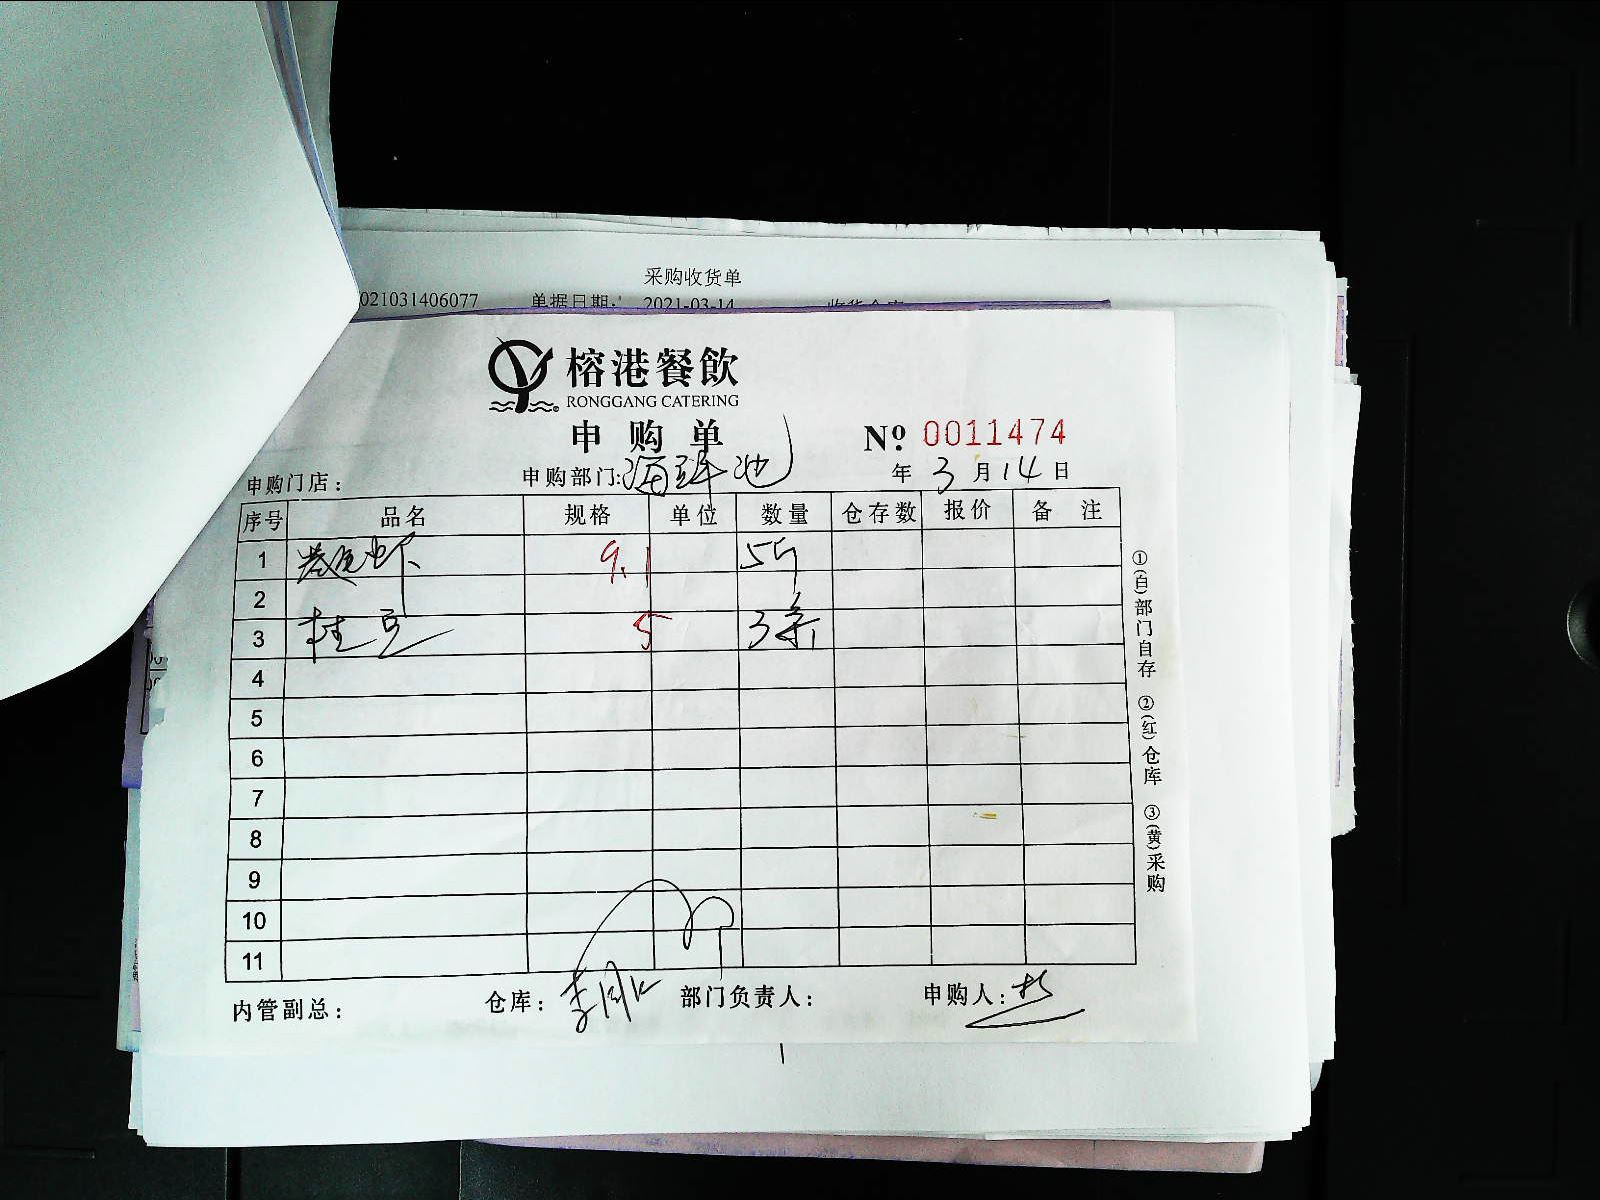 采购收货单
021031406077 单据日期: 2021-03-14
榕港餐飲
RONGGANG CATERING
申购单
Nº 0011474
申购门店: 申购部门:海鲜池 年 3 月 14 日
序号 品名 规格 单位 数量 仓存数 报价 备 注
1 9.1 5斤
2
3 桂 5 3条
4
5
6
7
8
9
10
11
①(白)部门自存 ②(红)仓库 ③(黄)采购
内管副总: 仓库: 李 部门负责人: 申购人: